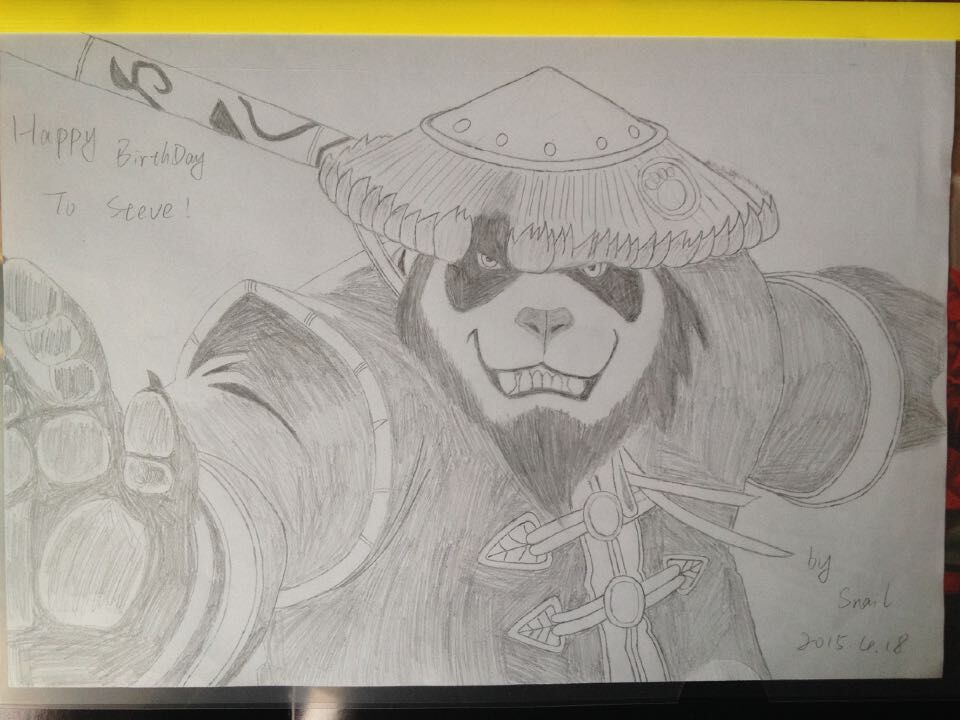 Happy
BirthDay
To Steve!
by
Snail
2015.4.18